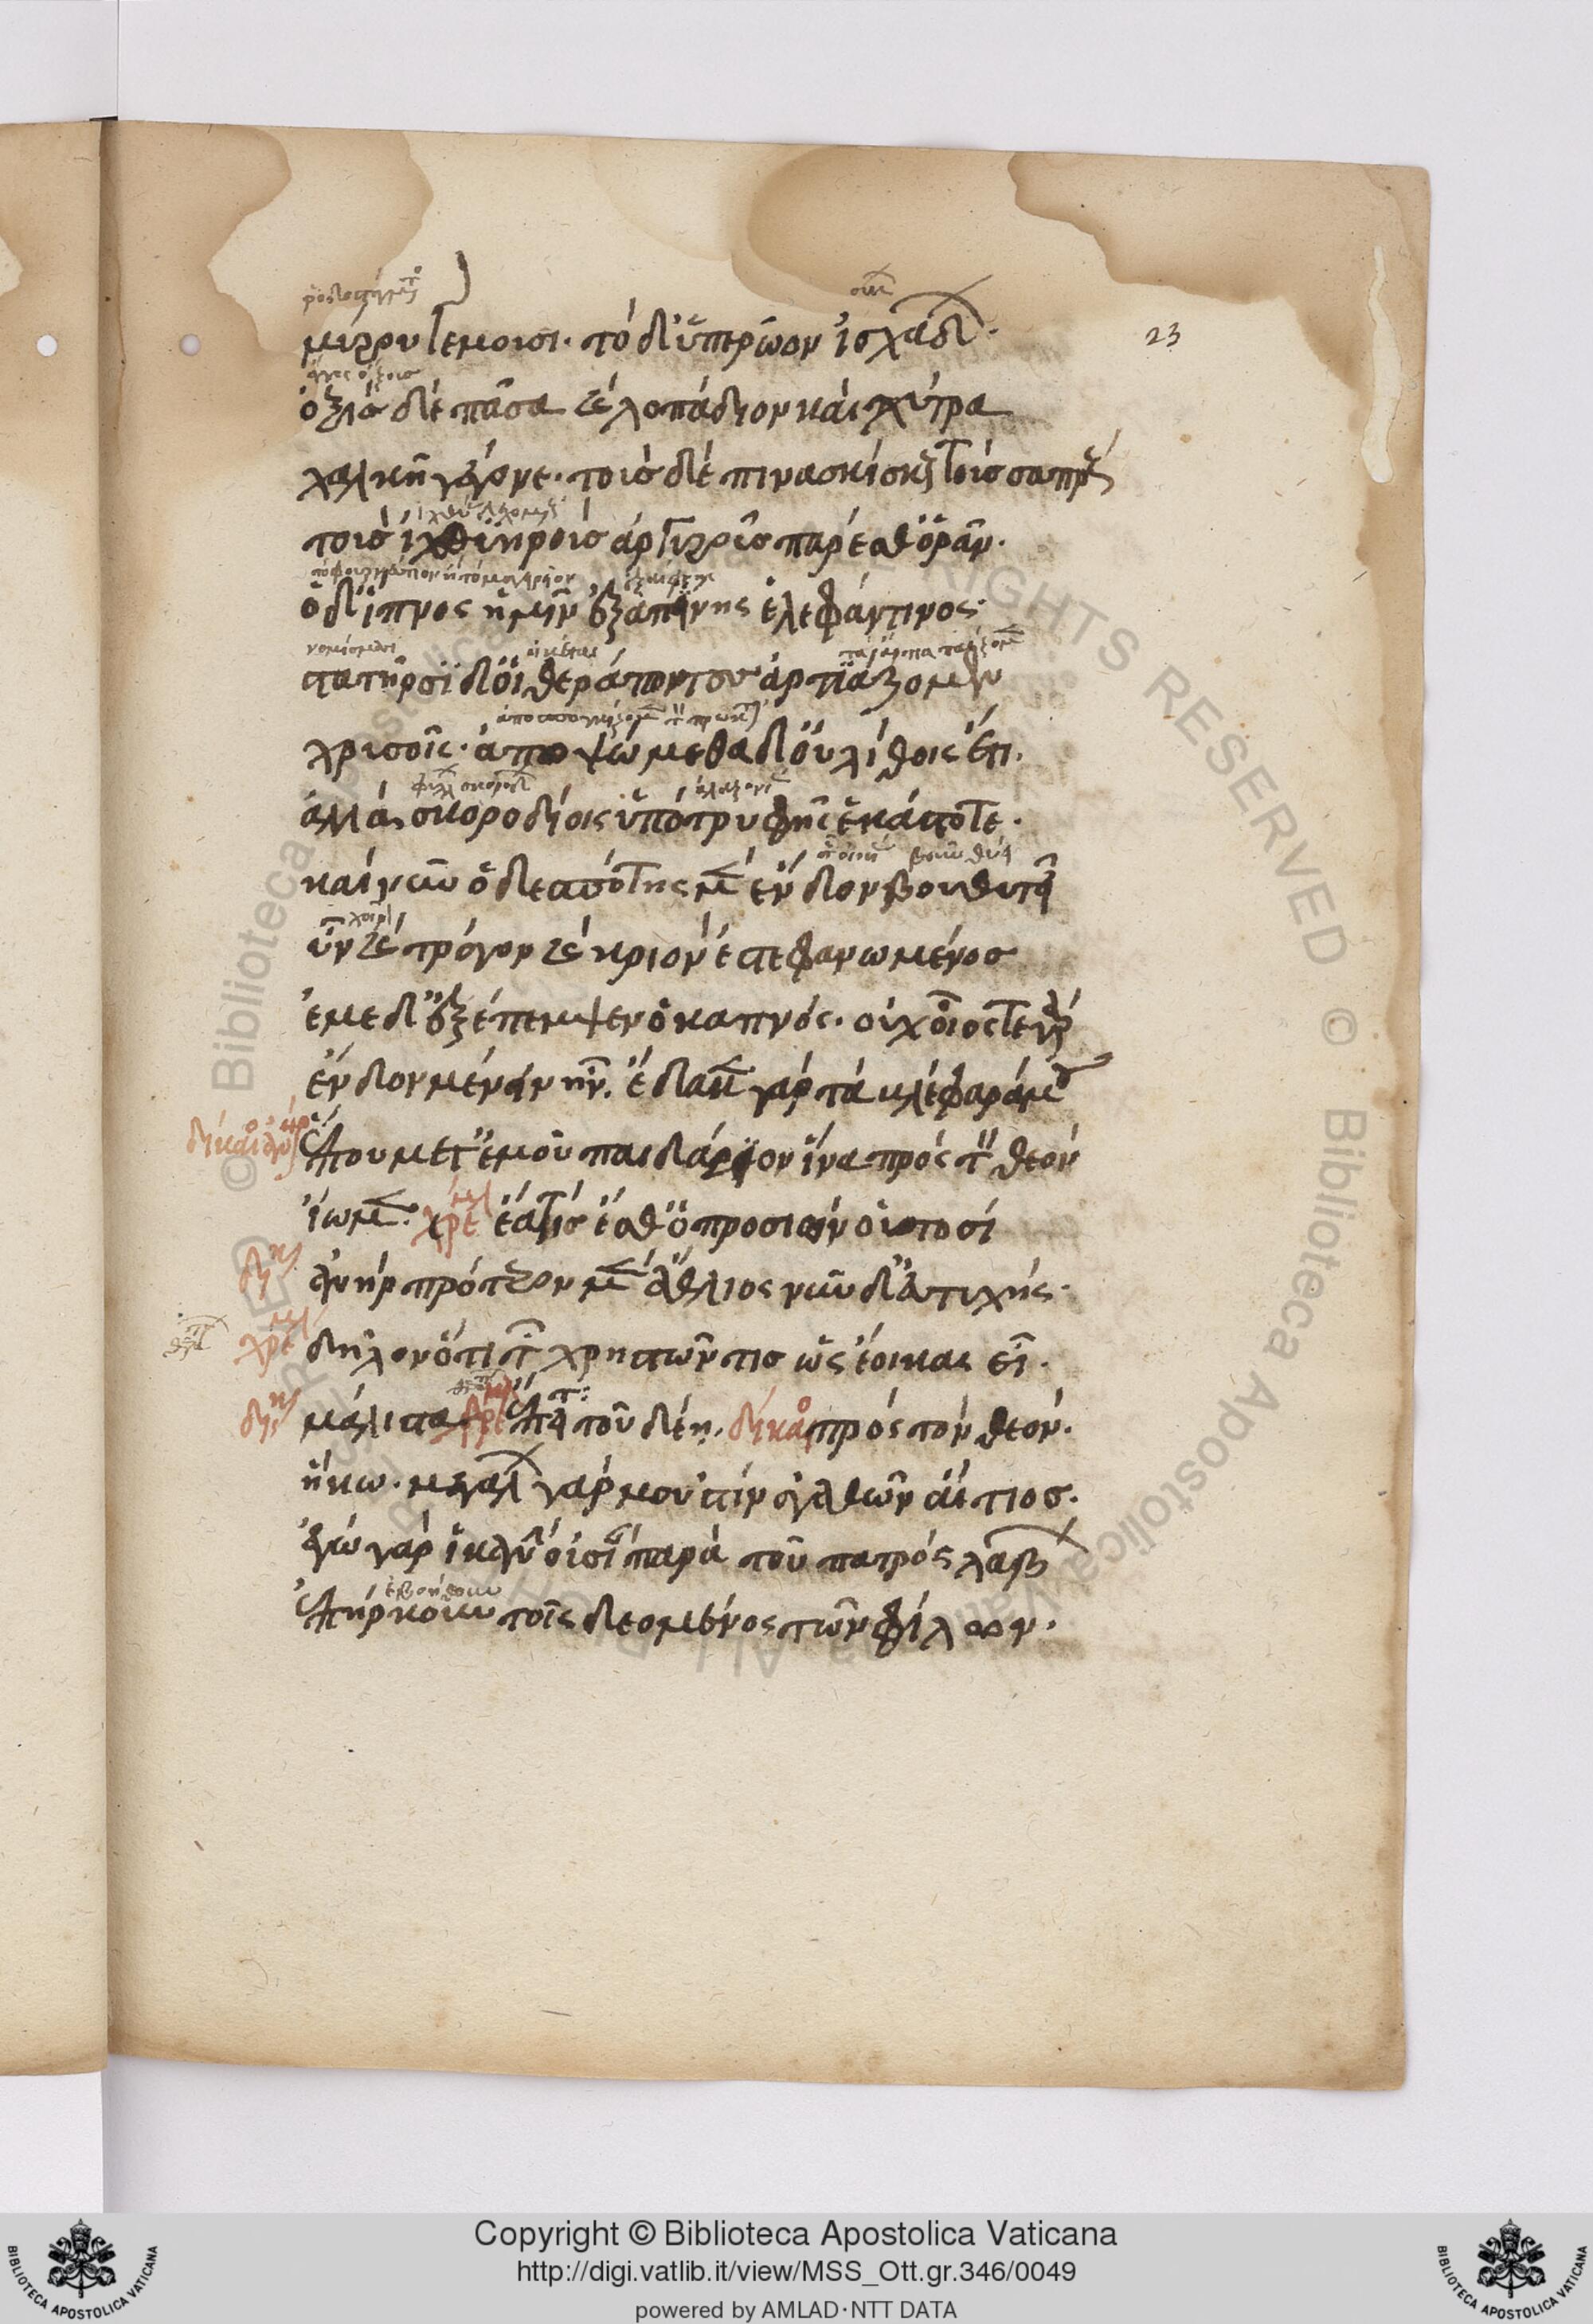 23
μύρου γέμουσι. τὸ δ' ὑπερῶον ἰσχάδων.
ὀξὶς δὲ πᾶσα καὶ λοπάδιον καὶ χύτρα
χαλκῆ γέγονε. τοὺς δὲ πινακίσκους τοὺς σαπροὺς
τοὺς ἰχθυηροὺς ἀργυροῦς πάρεσθ' ὁρᾶν.
ὁ δ' ἱπνὸς ἡμῖν ἐξαπίνης ἐλεφάντινος.
στατῆρσι δ' οἱ θεράποντες ἀρτιάζομεν
χρυσοῖς. ἀποψώμεθα δ' οὐ λίθοις ἔτι.
ἀλλὰ σκοροδίοις ὑπὸ τρυφῆς ἑκάστοτε.
καὶ νῦν ὁ δεσπότης μὲν ἔνδον βουθυτεῖ
ὗν καὶ τράγον καὶ κριὸν ἐστεφανωμένος
ἐμὲ δ' ἐξέπεμψεν ὁ καπνός. οὐχ οἷός τε γὰρ
ἔνδον μένειν ἦν. ἔδακνε γὰρ τὰ βλέφαρά μου
δίκαιος ἀνὴρ ἕπου μετ' ἐμοῦ παιδάριον ἵνα πρὸς τὸν θεὸν
ἴωμεν. χρεμ ἔα τίς ἔσθ' ὁ προσιὼν οὑτοσί
δικ ἀνὴρ πρότερον μὲν ἄθλιος νῦν δ' εὐτυχής.
χρεμ δῆλον ὅτι τῶν χρηστῶν τις ὡς ἔοικας εἶ.
δικ μάλιστα χρεμ ἔπειτα τοῦ δέῃ. δίκαι πρὸς τὸν θεὸν.
ἥκω. μεγάλων γάρ μοὐστὶν ἀγαθῶν αἴτιος.
ἐγὼ γὰρ ἱκανὴν οὐσίαν παρὰ τοῦ πατρὸς λαβὼν
ἐπήρκουν τοῖς δεομένοις τῶν φίλων.
Copyright © Biblioteca Apostolica Vaticana
http://digi.vatlib.it/view/MSS_Ott.gr.346/0049
powered by AMLAD·NTT DATA
BIBLIOTECA APOSTOLICA VATICANA
BIBLIOTECA APOSTOLICA VATICANA